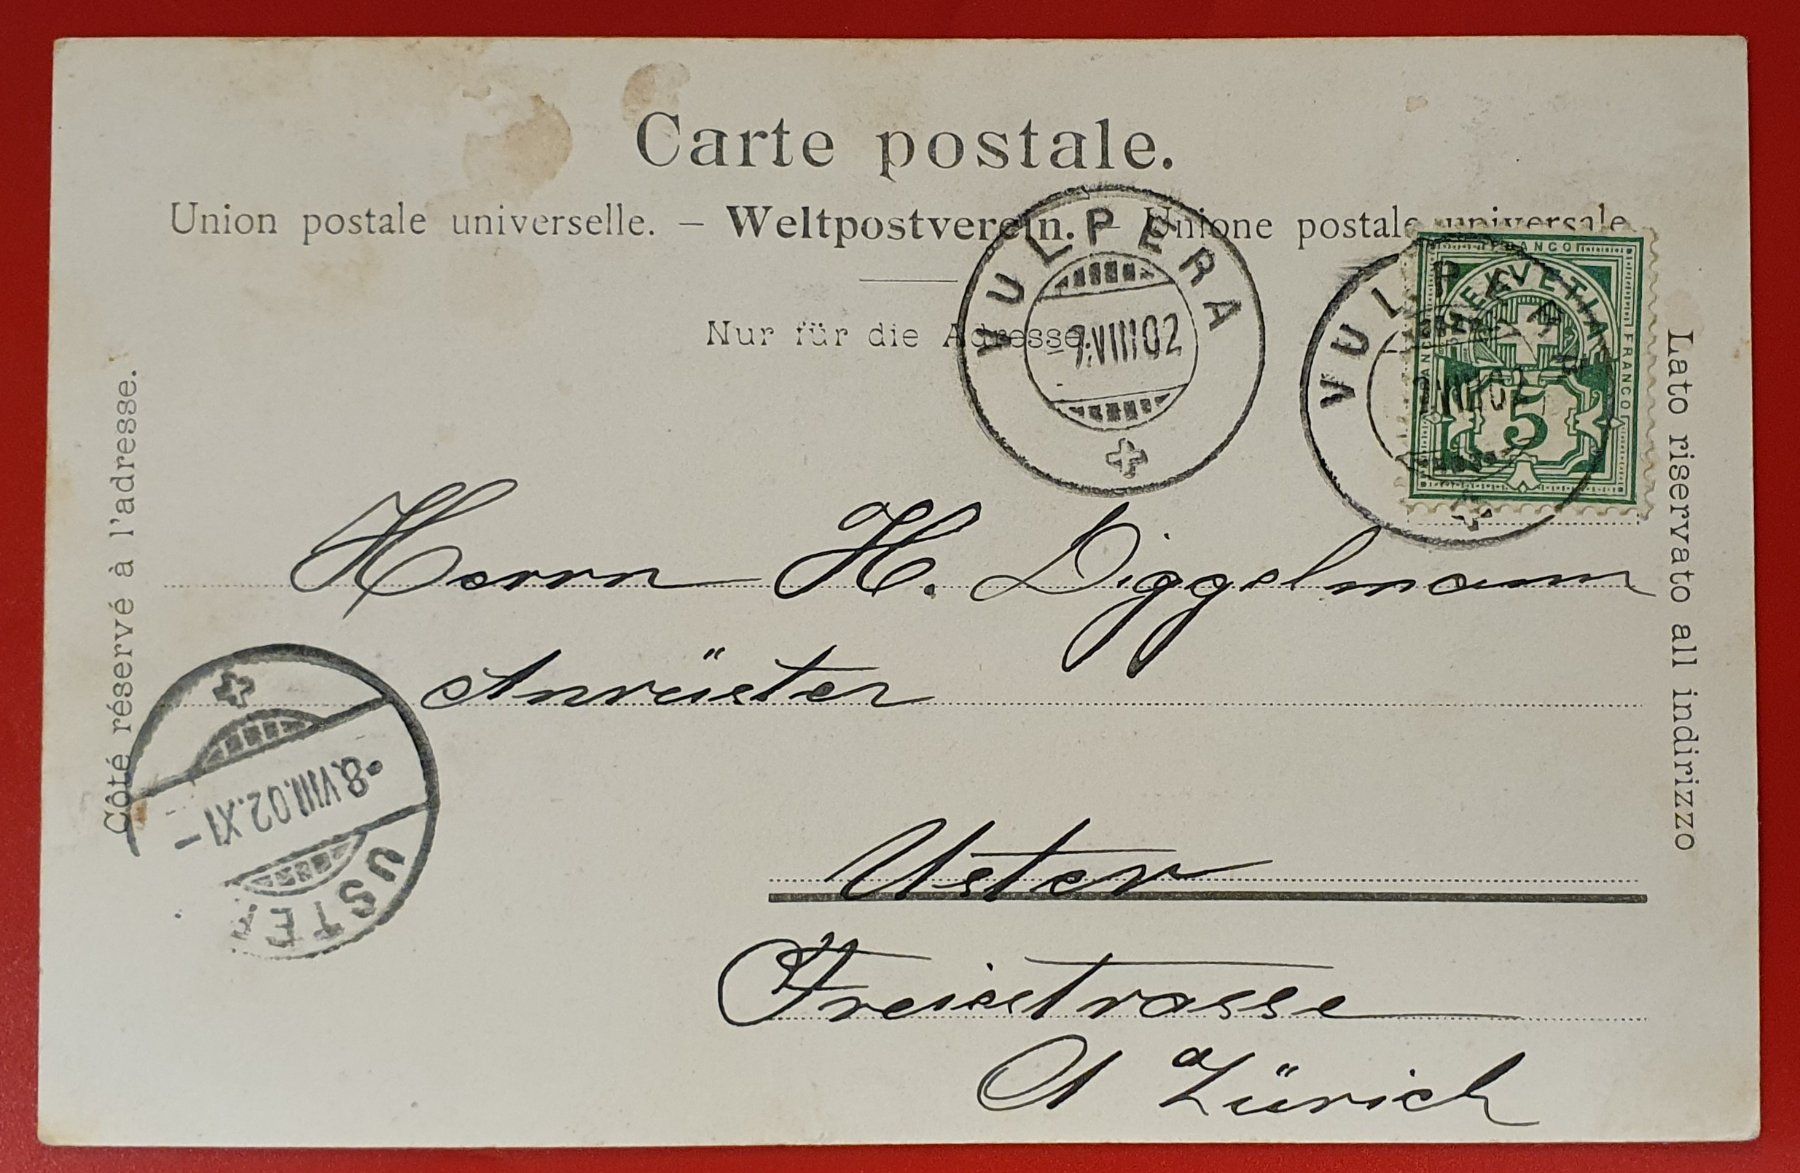 Carte postale.
Union postale universelle. – Weltpostverein. – Unione postale universale
Nur für die Adresse
Côté réservé à l'adresse.
Lato riservato all indirizzo
VULPERA
-7.VIII.02
VULPERA
VIII 02
FRANCO
HELVETIA
FRANCO
5
Herrn H. Diggelmann
Anrüster
Uster
Freiestrasse
Ct Zürich
USTER
-8.VIII.02.XI-